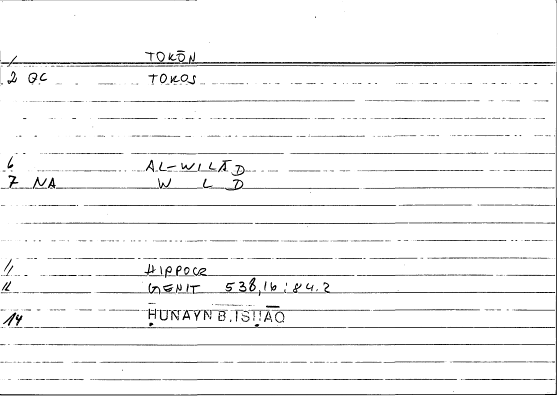 1 TOKŌN
2 GC TOKOS
6 AL-WILĀD
7 NA W L D
11 HIPPOCR
12 GENIT 538,16:84.2
14 ḤUNAYN B.ISḤĀQ